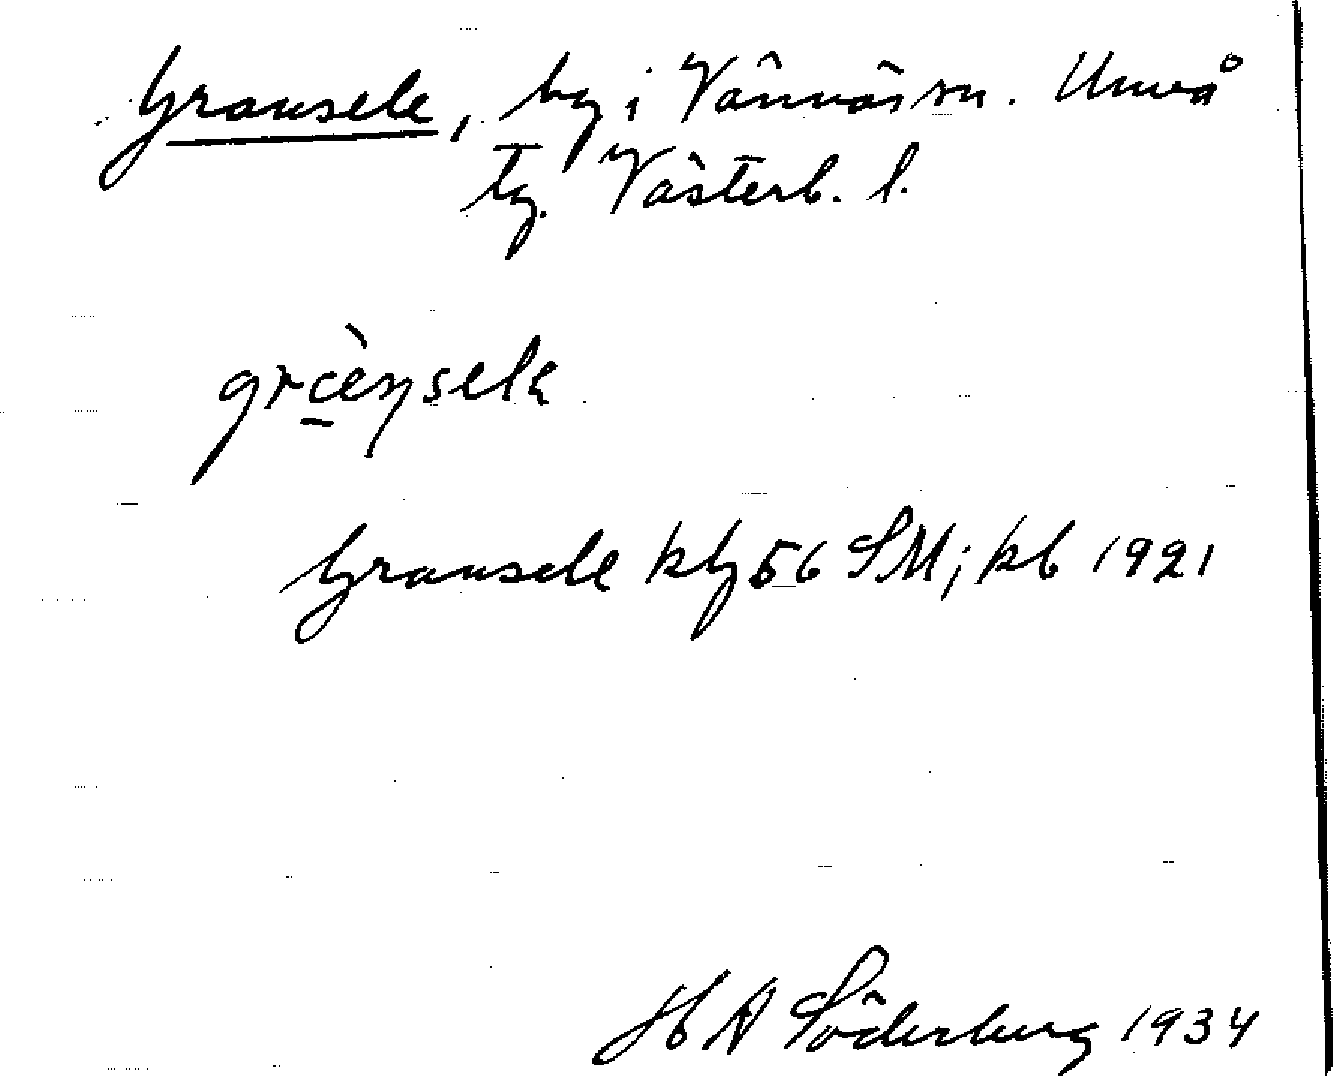 Gransele, by i Vännäs sn. Umeå
tg. Västerb. l.
Gransele kbl 56 SM; kb 1921
H A Söderberg 1934